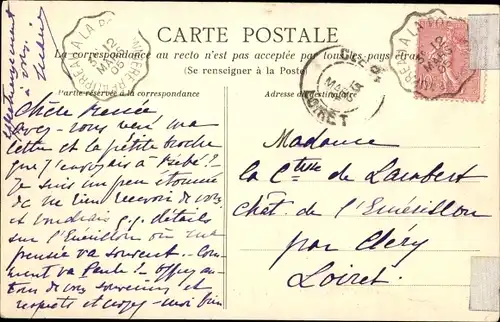 CARTE POSTALE
La correspondance au recto n'est pas acceptée par tous les pays étrangers
(Se renseigner à la Poste)
Partie réservée à la correspondance
Adresse du destinataire
Chère Renée
avez-vous reçu ma
lettre et la petite broche
que j'envoyais à Bébé?
Je suis un peu étonnée
de ne rien recevoir de vous
et voudrais q.q. détails
sur l'Emérillon où ma
pensée va souvent. Com-
ment va Paule? Offrez au-
tour de vous souvenirs et
respects et croyez-moi bien
affectueusement
à vous
Madame
la Ctesse de Lambert
Chât. de l'Emérillon
par Cléry
Loiret.
LOIRET
12
MARS
05